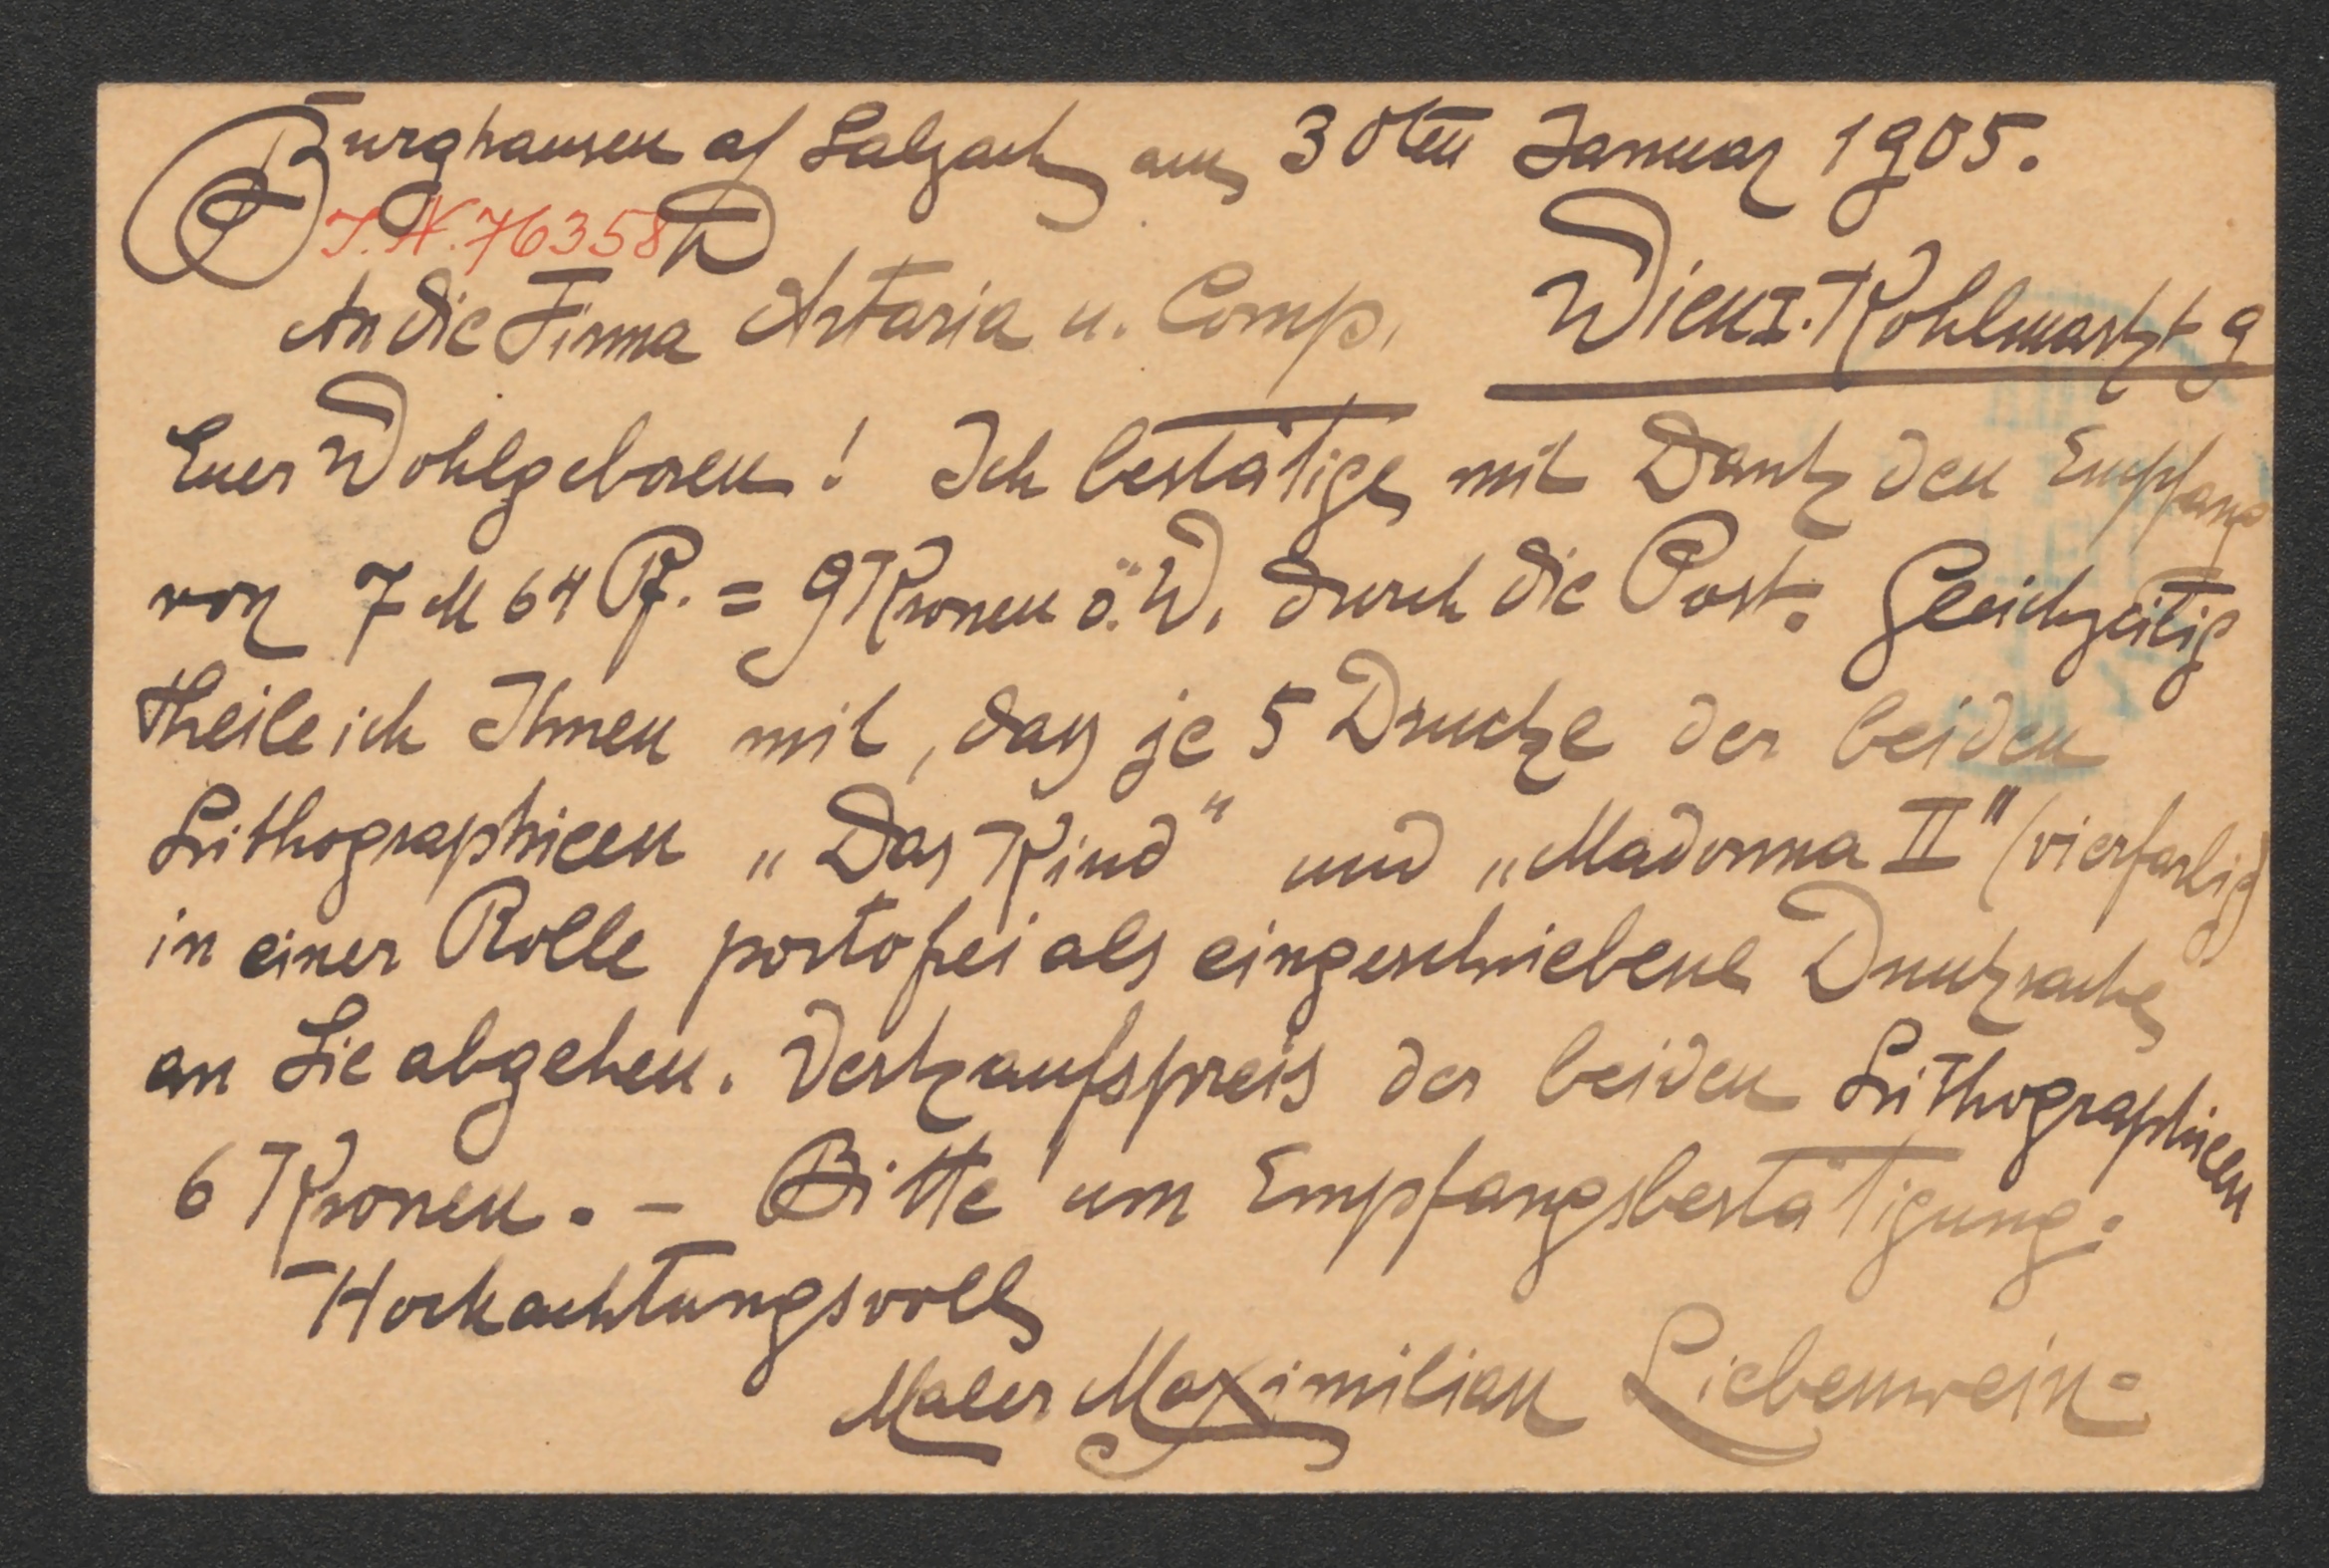 Burghausen a/ Salzach am 30ten Januar 1905.
I.N. 76358
An die Firma Artaria u. Comp. Wien I. Kohlmarkt 9
Euer Wohlgeboren! Ich bestätige mit Dank den Empfang
von 7 M 64 Pf. = 9 Kronen ö. W. durch die Post. Gleichzeitig
theile ich Ihnen mit, dass je 5 Drucke der beiden
Lithographieen „Das Kind" und „Madonna II" (vierfarbig)
in einer Rolle portofrei als eingeschriebene Drucksache
an Sie abgehen. Verkaufspreis der beiden Lithographieen
6 Kronen. - Bitte um Empfangsbestätigung.
Hochachtungsvoll
Maler Maximilian Liebenwein